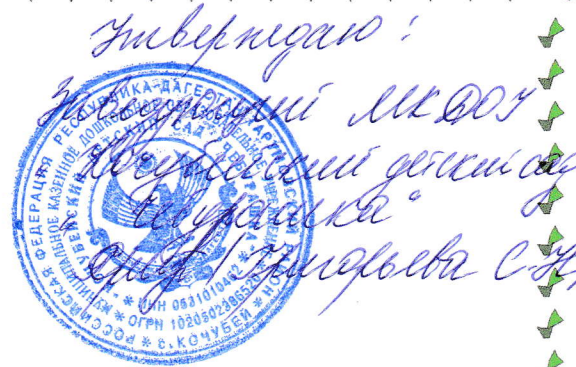 Утверждаю:
Заведующий МКДОУ
Кочубейский детский сад
"Чебурашка"
/ Григорьева С.Н.
РОССИЙСКАЯ ФЕДЕРАЦИЯ РЕСПУБЛИКА ДАГЕСТАН ТАРУМОВСКИЙ РАЙОН * С. КОЧУБЕЙ *
МУНИЦИПАЛЬНОЕ КАЗЕННОЕ ДОШКОЛЬНОЕ
ДЕТСКИЙ САД "ЧЕБУРАШКА"
* ИНН 0531010482 *
* ОГРН